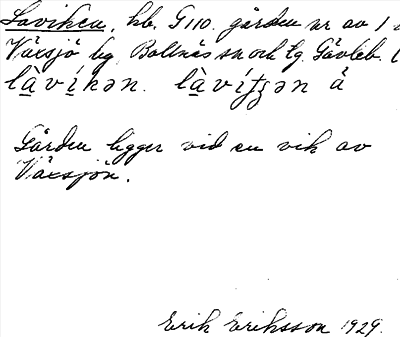 Laviken, hb. G110. gården nr av 1 i
Växsjö by, Bollnäs sn och tg. Gävleb. l
là̱ví̱kən. là̱víʈʂən å
Gården ligger vid en vik av
Växsjön.
Erik Eriksson 1929.